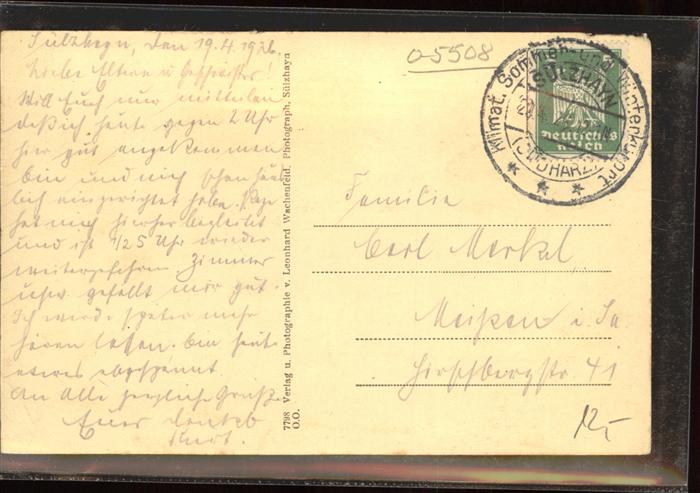 Sülzhayn, den 19.4.1926.
Liebe Eltern u Geschwister!
Will Euch nur mitteilen
daß ich heute gegen 2 Uhr
hier gut angekommen
bin und mich schon häus
lich eingerichtet habe.
hat mich hierher begleitet
und ist 1/2 5 Uhr wieder
weitergefahren. Zimmer
usw. gefällt mir gut.
Ich werde später mehr
hören lassen. Bin heut
etwas abgespannt.
An Alle herzliche Grüße
Euer
Kurt.
7798 Verlag u. Photographie v. Leonhard Wachenfeld, Photograph, Sülzhayn
O.O.
05508
Klimat. Sommer- und Winterkurort
SÜLZHAYN
(SÜDHARZ)
* * *
Deutsches
Reich
Familie
Carl Merkel
Meißen i. Sa.
Hirschbergstr. 41
12,-